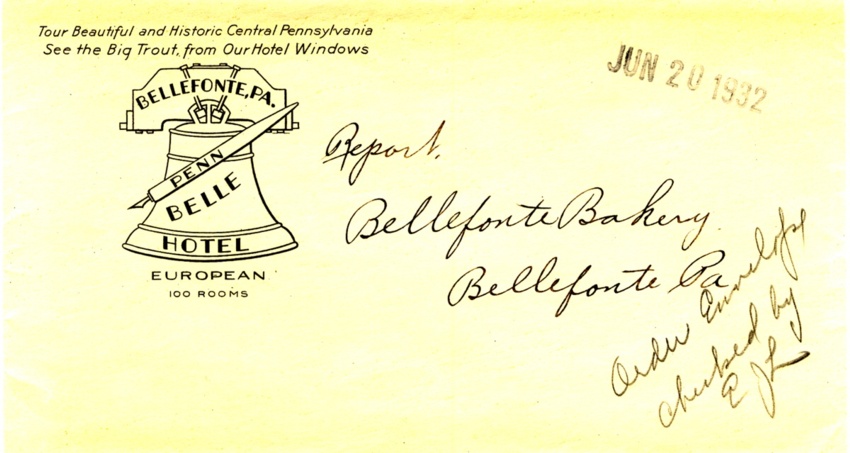 Tour Beautiful and Historic Central Pennsylvania
See the Big Trout, from Our Hotel Windows
JUN 20 1932
BELLEFONTE, PA.
PENN
BELLE
HOTEL
EUROPEAN
100 ROOMS
Report.
Bellefonte Bakery
Bellefonte Pa
Order Envelope
checked by
EJL